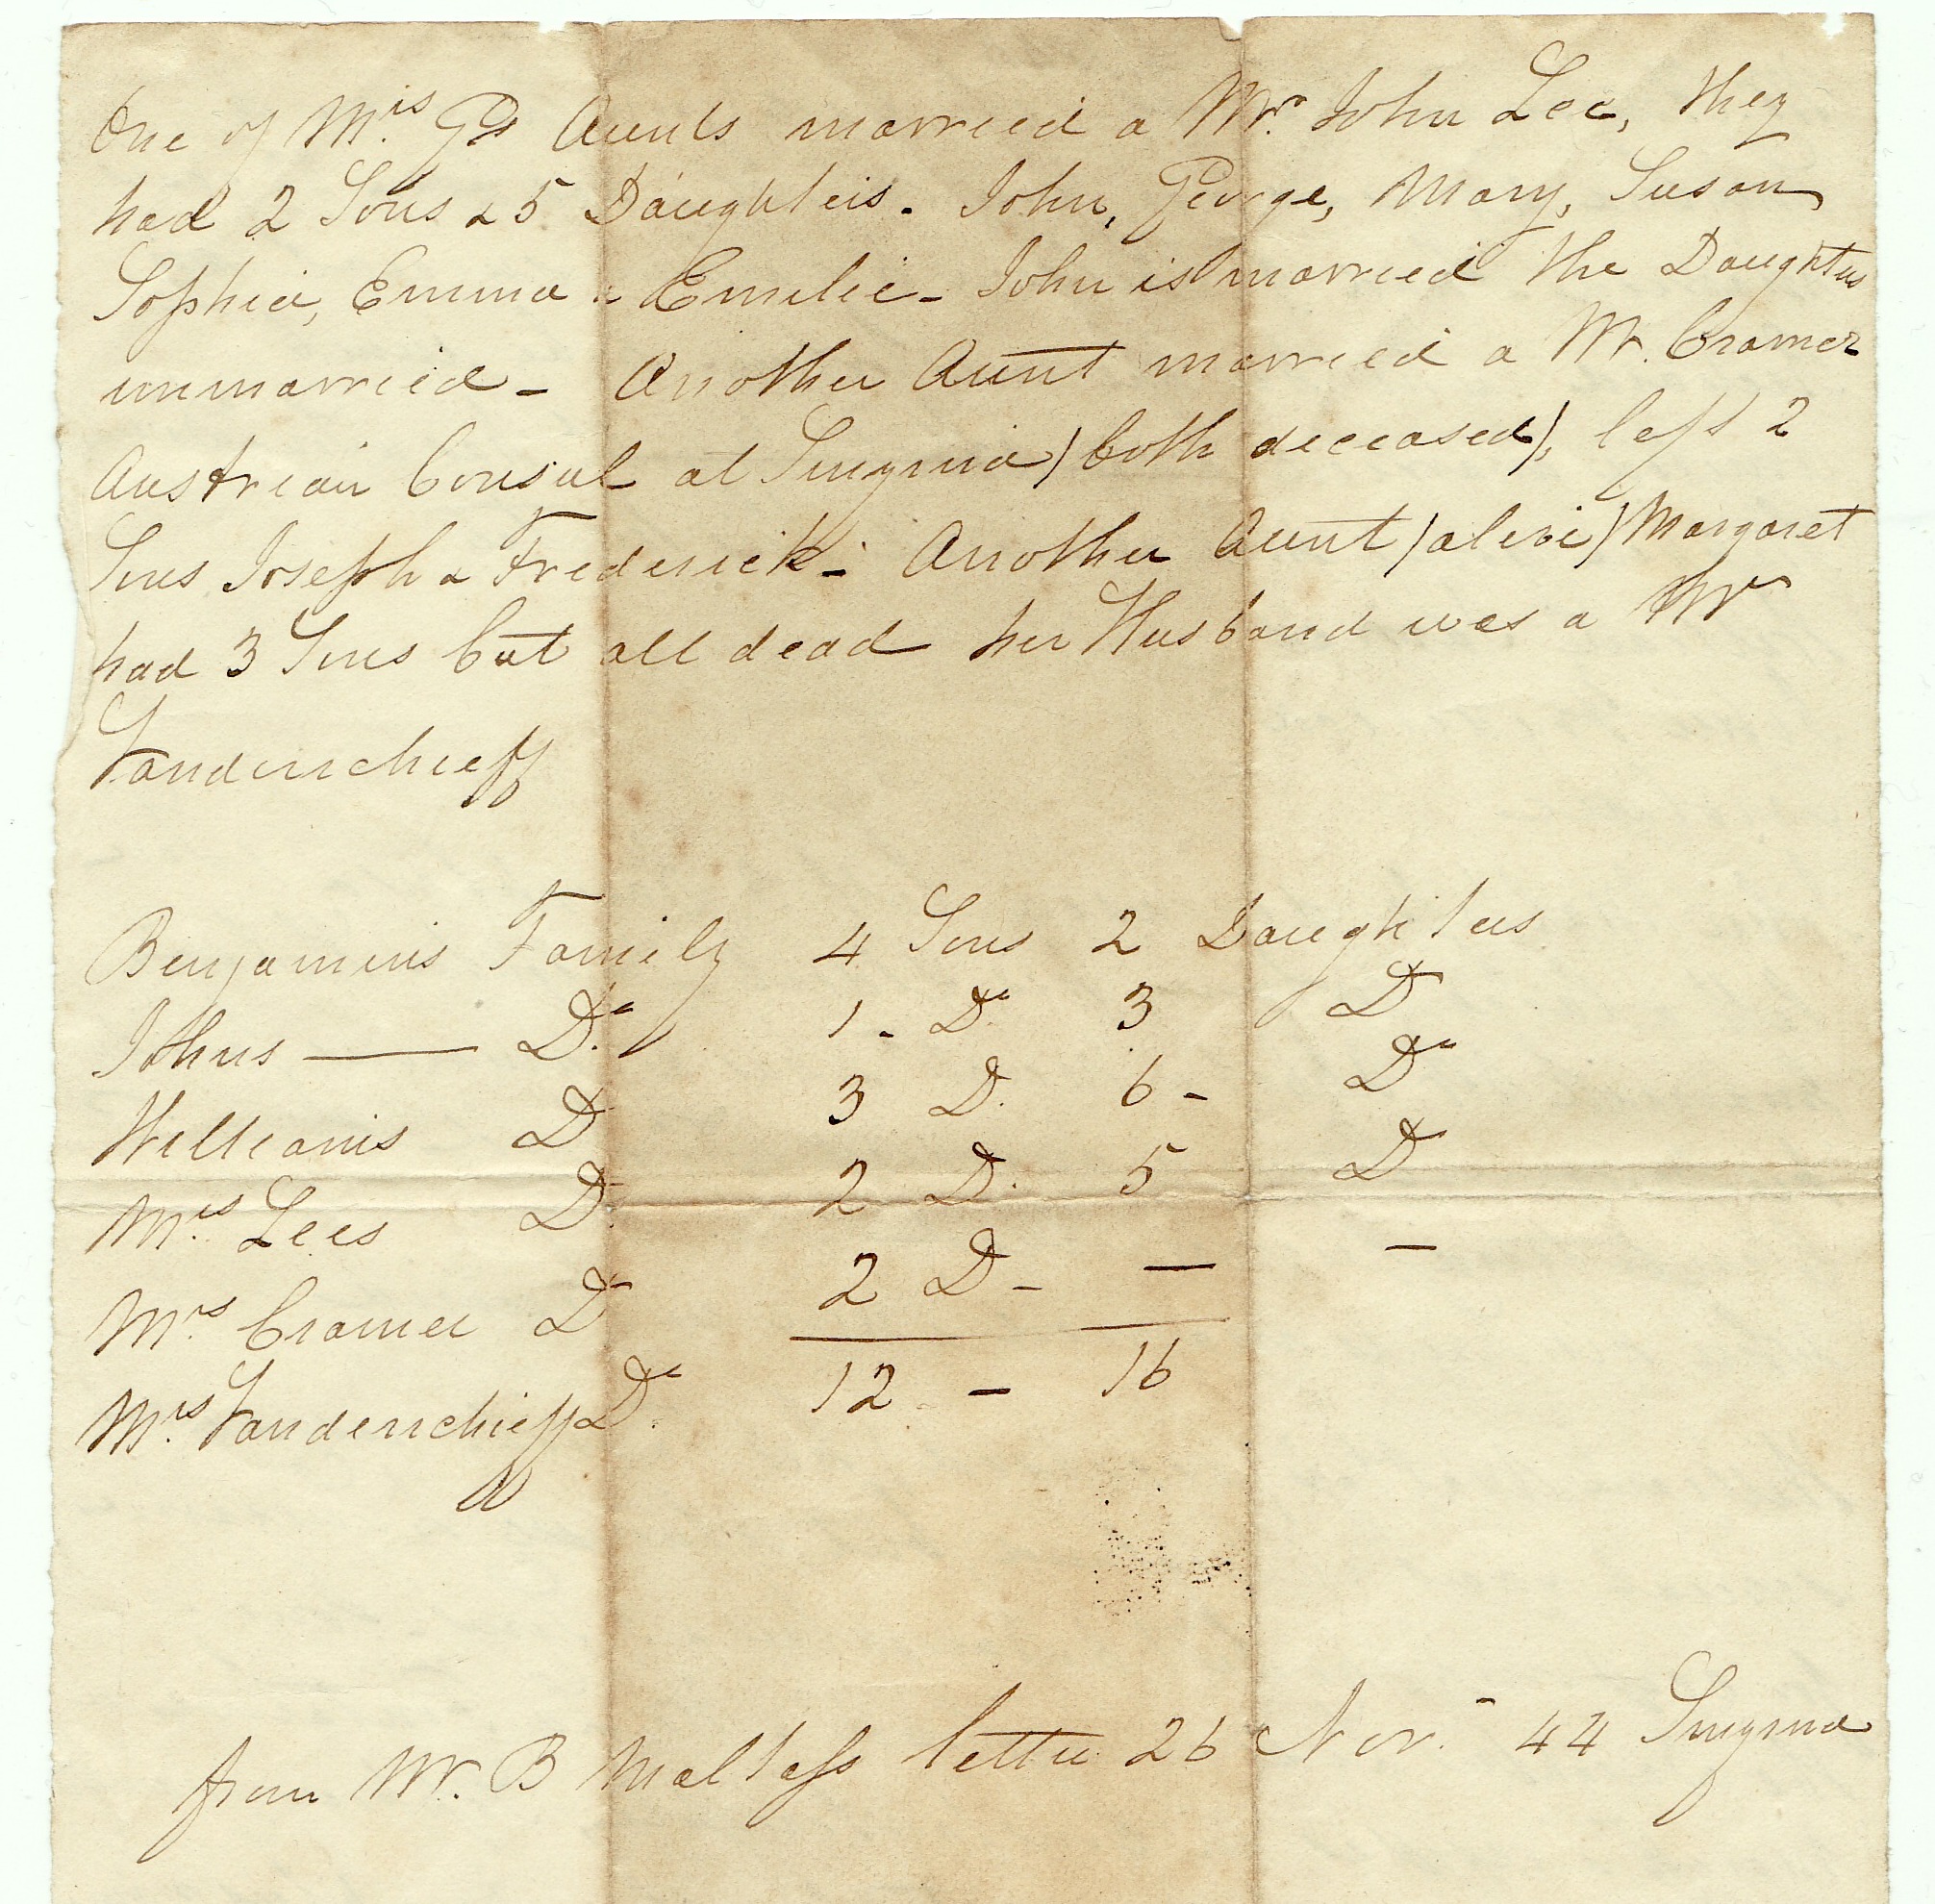 One of Mrs. Gs Aunts married a Mr. John Lee, they
had 2 Sons & 5 Daughters. John, George, Mary, Susan
Sophia, Emma & Emelie - John is married the Daughters
unmarried - Another Aunt married a Mr. Cramer
Austrian Consul at Smyrna (both deceased), left 2
Sons Joseph & Frederick - Another Aunt (alive) Margaret
had 3 Sons but all dead her Husband was a Mr
Vanderschieff
Benjamins Family 4 Sons 2 Daughters
Johns — Do. 1 - Do. 3 Do
Williams D 3 D. 6 - Do
Mrs. Lees D. 2 D. 5 D
Mrs. Cramer D 2 D - — —
Mrs. Vanderschieff Do. 12 - 16
from Mr. B Maltass letter 26 Nov. 44 Smyrna